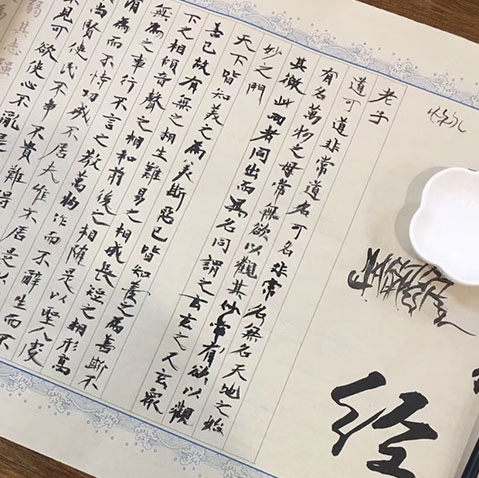 老子
道可道非常道名可名非常名無名天地之始
有名萬物之母常無欲以觀其妙常有欲以觀
其徼此兩者同出而異名同謂之玄玄之又玄眾
妙之門
天下皆知美之為美斯惡已皆知善之為善斯不
善已故有無之相生難易之相成長短之相形高
下之相傾音聲之相和前後之相隨是以聖人處
無為之事行不言之教萬物作而不辭生而不
有為而不恃功成不居夫唯不居是以不
尚賢使民不爭不貴難得
不見可欲使心不亂是
弱其志強
經